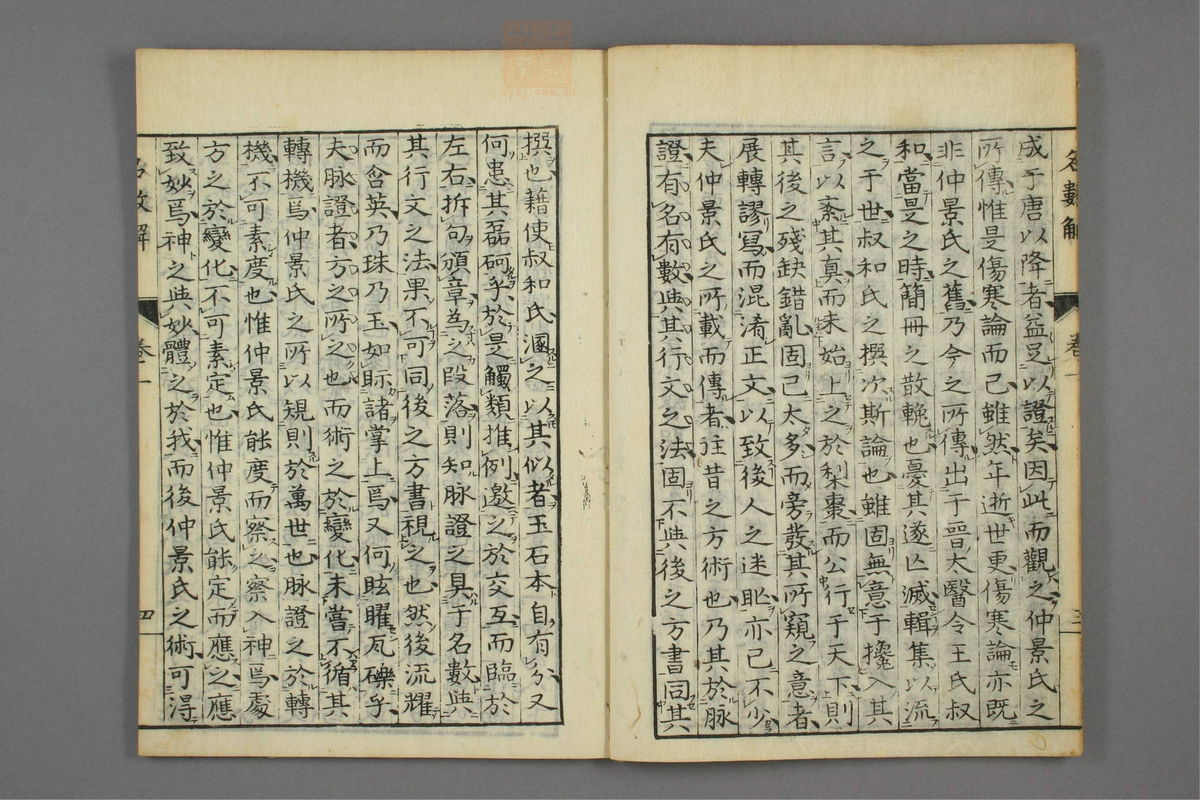 名數解
卷一
三
成于唐以降者益足以證矣因此而觀之仲景氏之
所傳惟是傷寒論而已雖然年逝世更傷寒論亦既
非仲景氏之舊乃今之所傳出于晉大醫令王氏叔
和當是之時簡冊之散輓也憂其遂亾滅輯集以流
之于世叔和氏之撰次斯論也雖固無意于攙入其
言以紊其真而未始上之於梨棗而公行于天下則
其後之殘缺錯亂固已太多而旁發其所窺之意者
展轉謬寫而混淆正文以致後人之迷眩亦已不少
夫仲景氏之所載而傳者往昔之方術也乃其於脉
證有名有數與其行文之法固不與後之方書同其
撰也藉使叔和氏溷之以其似者玉石本自有分又
何患其磊砢乎於是觸類推例邀之於交互而臨於
左右拆句頒章為之段落則知脉證之具于名數與
其行文之法果不可同後之方書視之也然後流耀
而含英乃珠乃玉如眎諸掌上焉又何眩曜瓦礫乎
夫脉證者方之所之也而術之於變化未嘗不循其
轉機焉仲景氏之所以規則於萬世也脉證之於轉
機不可素度也惟仲景氏能度而察之察入神焉處
方之於變化不可素定也惟仲景氏能定而應之應
致妙焉神之與妙體之於我而後仲景氏之術可得
名數解
卷一
四